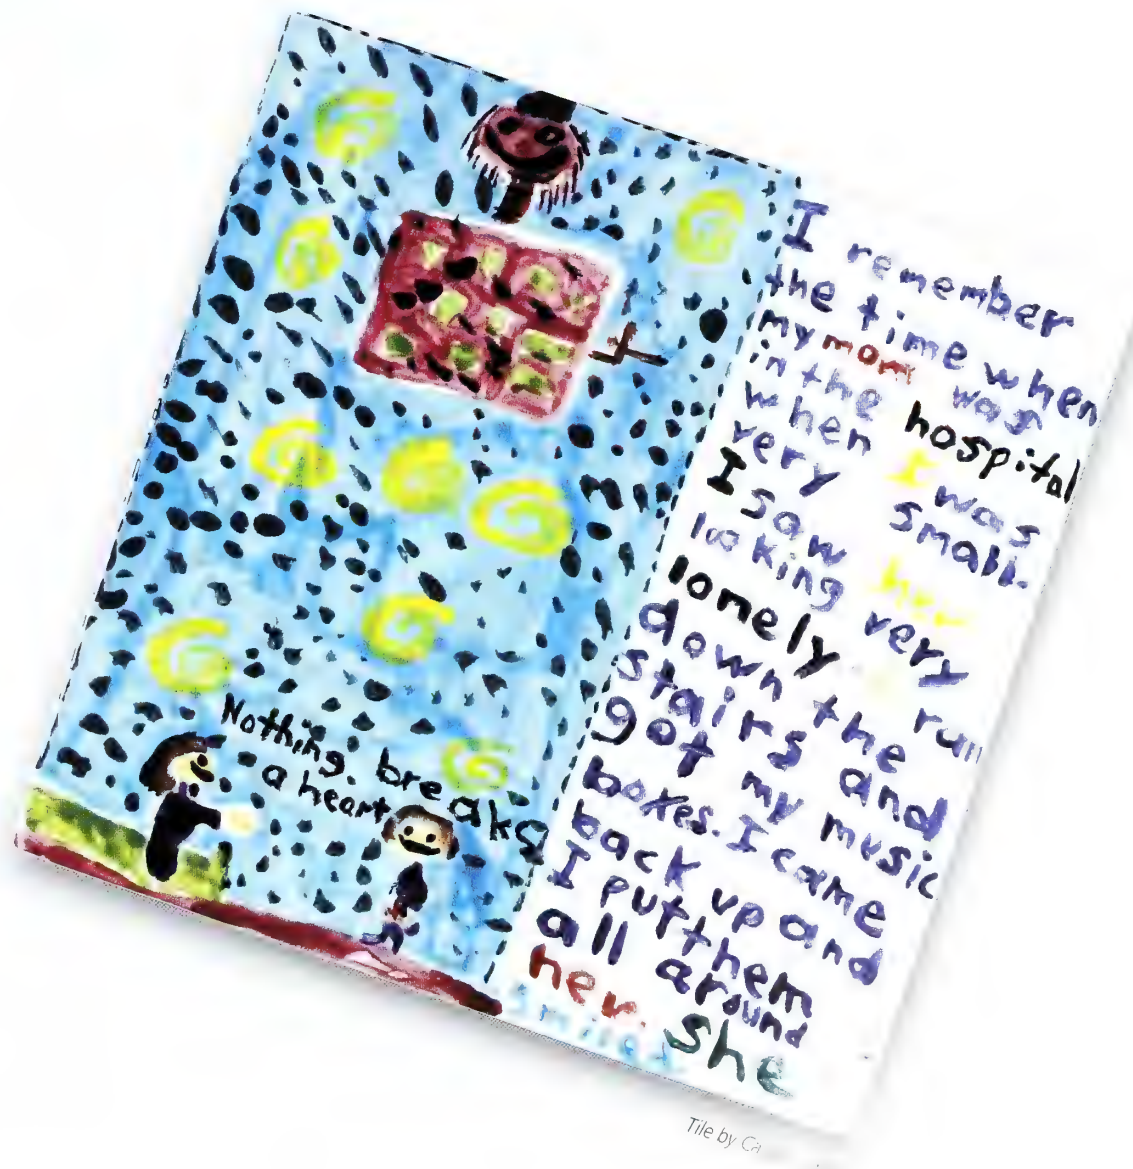 Nothing. breaks
a heart
I remember
the time when
my mom was
in the hospital
when I was
very small.
I saw her
looking very
lonely run
down the
stairs and
got my music
boxes. I came
back up and
I put them
all around
her. she
smiled
Tile by Ca